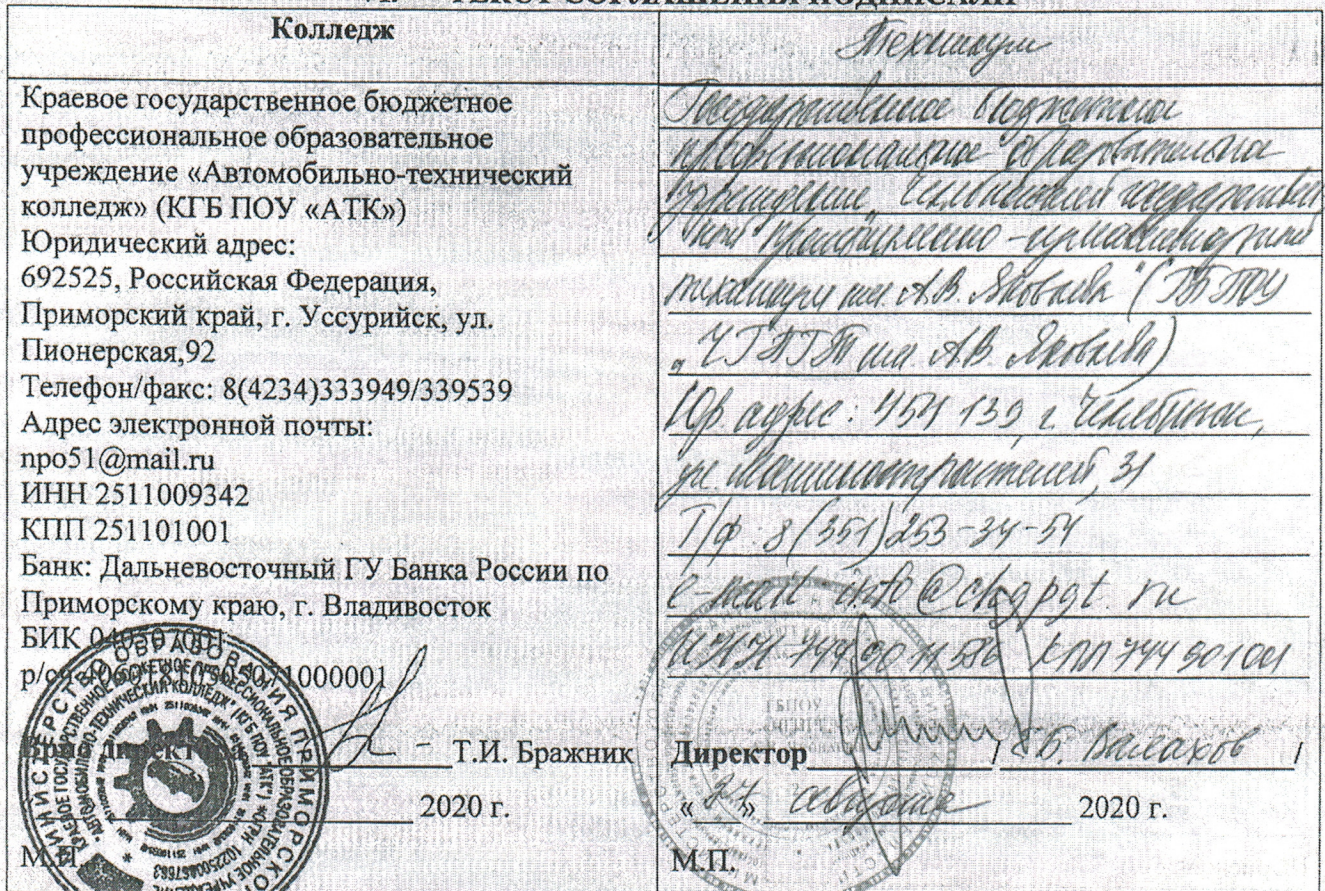 ТЕКСТ СОГЛАШЕНИЯ ПОДПИСАЛИ
Колледж
Краевое государственное бюджетное
профессиональное образовательное
учреждение «Автомобильно-технический
колледж» (КГБ ПОУ «АТК»)
Юридический адрес:
692525, Российская Федерация,
Приморский край, г. Уссурийск, ул.
Пионерская,92
Телефон/факс: 8(4234)333949/339539
Адрес электронной почты:
npo51@mail.ru
ИНН 2511009342
КПП 251101001
Банк: Дальневосточный ГУ Банка России по
Приморскому краю, г. Владивосток
БИК
р/сч
Врио директ
Т.И. Бражник
2020 г.
М.П.
Техникум
Государственное бюджетное
профессиональное образовательное
учреждение "Челябинский государствен
ный промышленно-гуманитарный
техникум им. А.В. Яковлева" (ГБПОУ
"ЧГПГТ им. А.В. Яковлева)
Юр. адрес: 454 139, г. Челябинск,
ул. Машиностроителей, 31
Т/ф: 8(351)253-34-54
e-mail: info@chgpgt.ru
ИНН КПП 744901001
Директор / Валахов /
« 27 » августа 2020 г.
М.П.